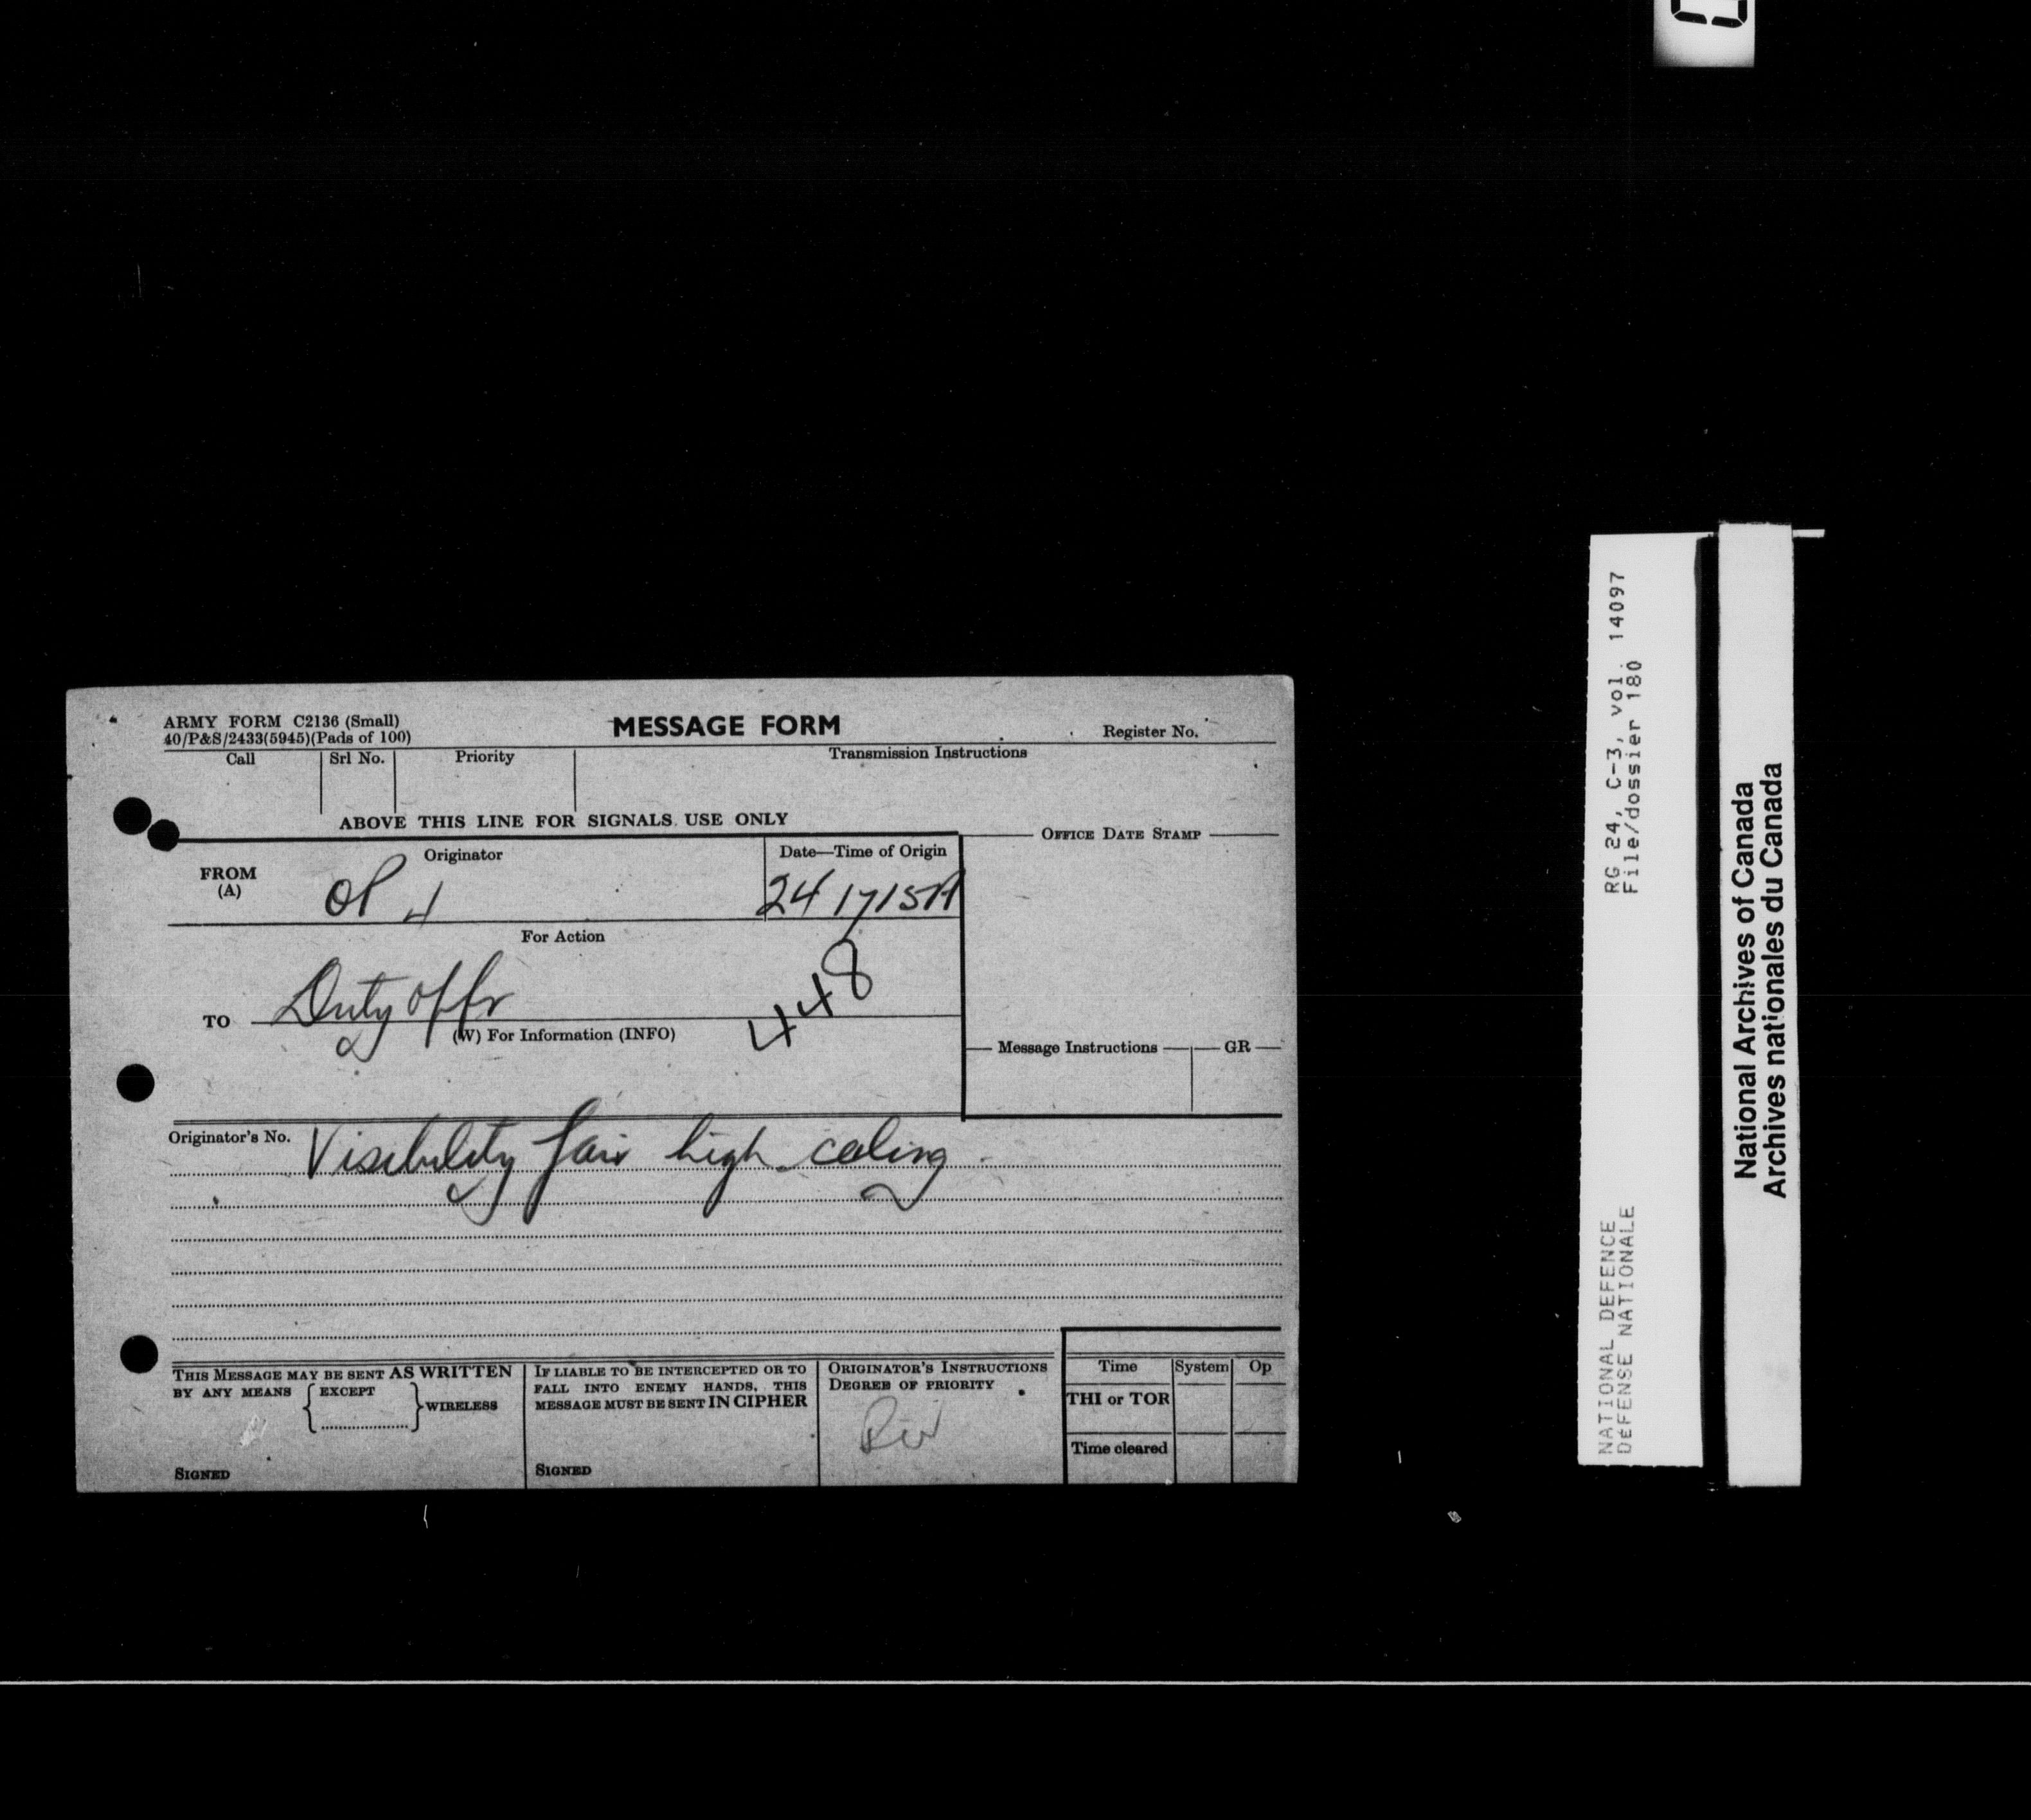 ARMY FORM C2136 (Small)
40/P&S/2433(5945)(Pads of 100)
MESSAGE FORM
Register No.
Call
Srl No.
Priority
Transmission Instructions
ABOVE THIS LINE FOR SIGNALS USE ONLY
OFFICE DATE STAMP
FROM
(A)
Originator
OP 4
Date—Time of Origin
24 1715A
For Action
TO
Duty offr
448
(W) For Information (INFO)
Message Instructions
GR
Originator's No.
Visibility fair high ceiling
THIS MESSAGE MAY BE SENT AS WRITTEN
BY ANY MEANS
EXCEPT
WIRELESS
SIGNED
IF LIABLE TO BE INTERCEPTED OR TO
FALL INTO ENEMY HANDS, THIS
MESSAGE MUST BE SENT IN CIPHER
SIGNED
ORIGINATOR'S INSTRUCTIONS
DEGREE OF PRIORITY
Time
System
Op
THI or TOR
Time cleared
RG 24, C-3, vol. 14097
File/dossier 180
NATIONAL DEFENCE
DÉFENSE NATIONALE
National Archives of Canada
Archives nationales du Canada